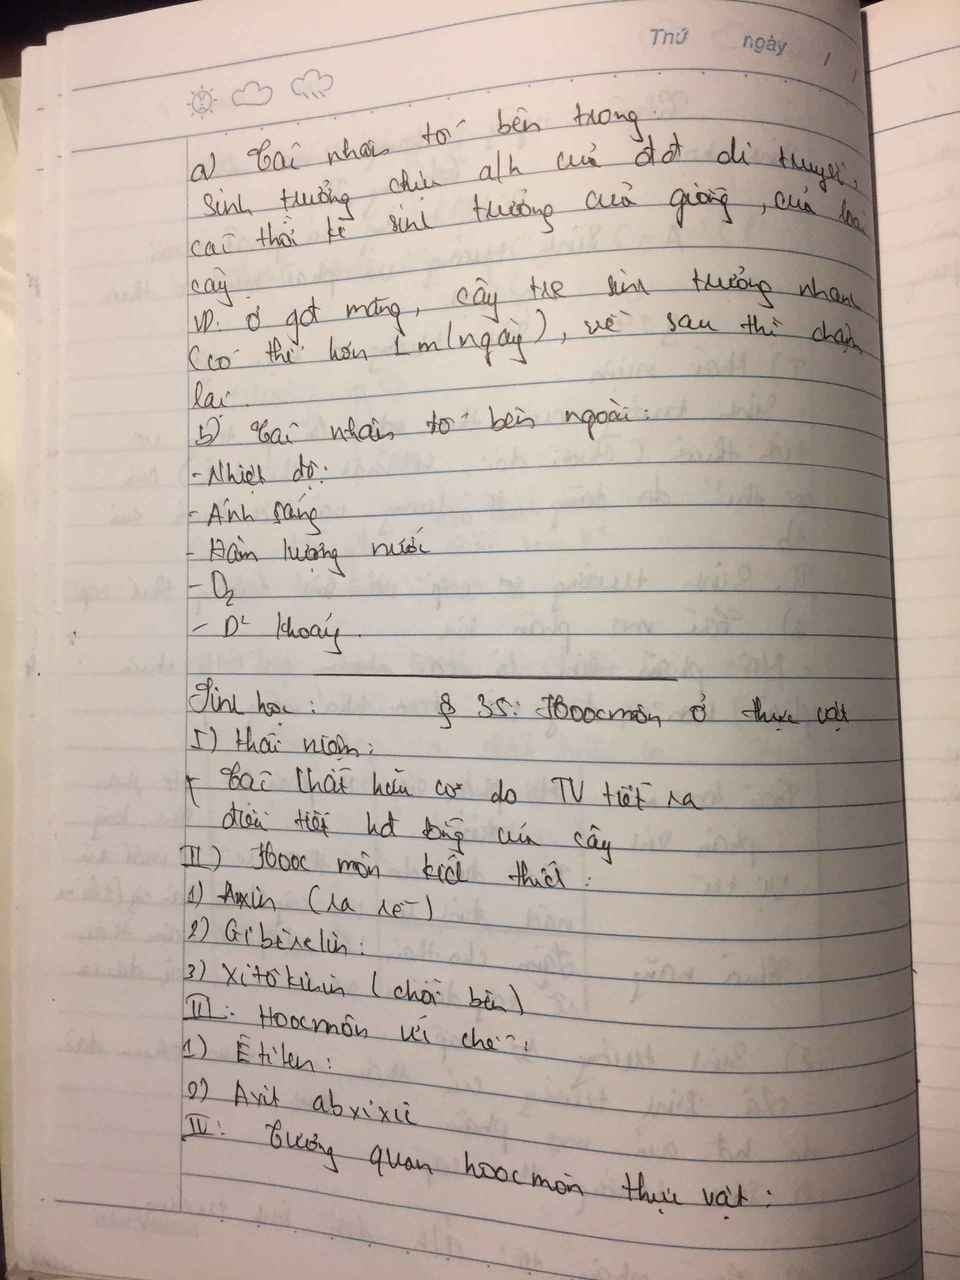 Thứ ngày / /
a) Các nhân tố bên trong.
Sinh trưởng chịu a/h của đđ di truyền,
các thời kì sinh trưởng của giống, của loài
cây.
VD. Ở gđ măng, cây tre sinh trưởng nhanh
(có thể hơn 1m/ngày), về sau thì chậm
lại.
b) Các nhân tố bên ngoài:
- Nhiệt độ:
- Ánh sáng
- Hàm lượng nước
- O2
- D2 khoáng.
Sinh học: § 35: Hoocmôn ở thực vật
I) Khái niệm:
+ Các chất hữu cơ do TV tiết ra
điều tiết hđ sống của cây
II) Hooc môn kích thích:
1) Auxin (ra rễ)
2) Gibêrelin:
3) Xitôkinin (chồi bên)
III: Hoocmôn ức chế:
1) Êtilen:
2) Axit abxixic
IV: Tương quan hoocmôn thực vật: